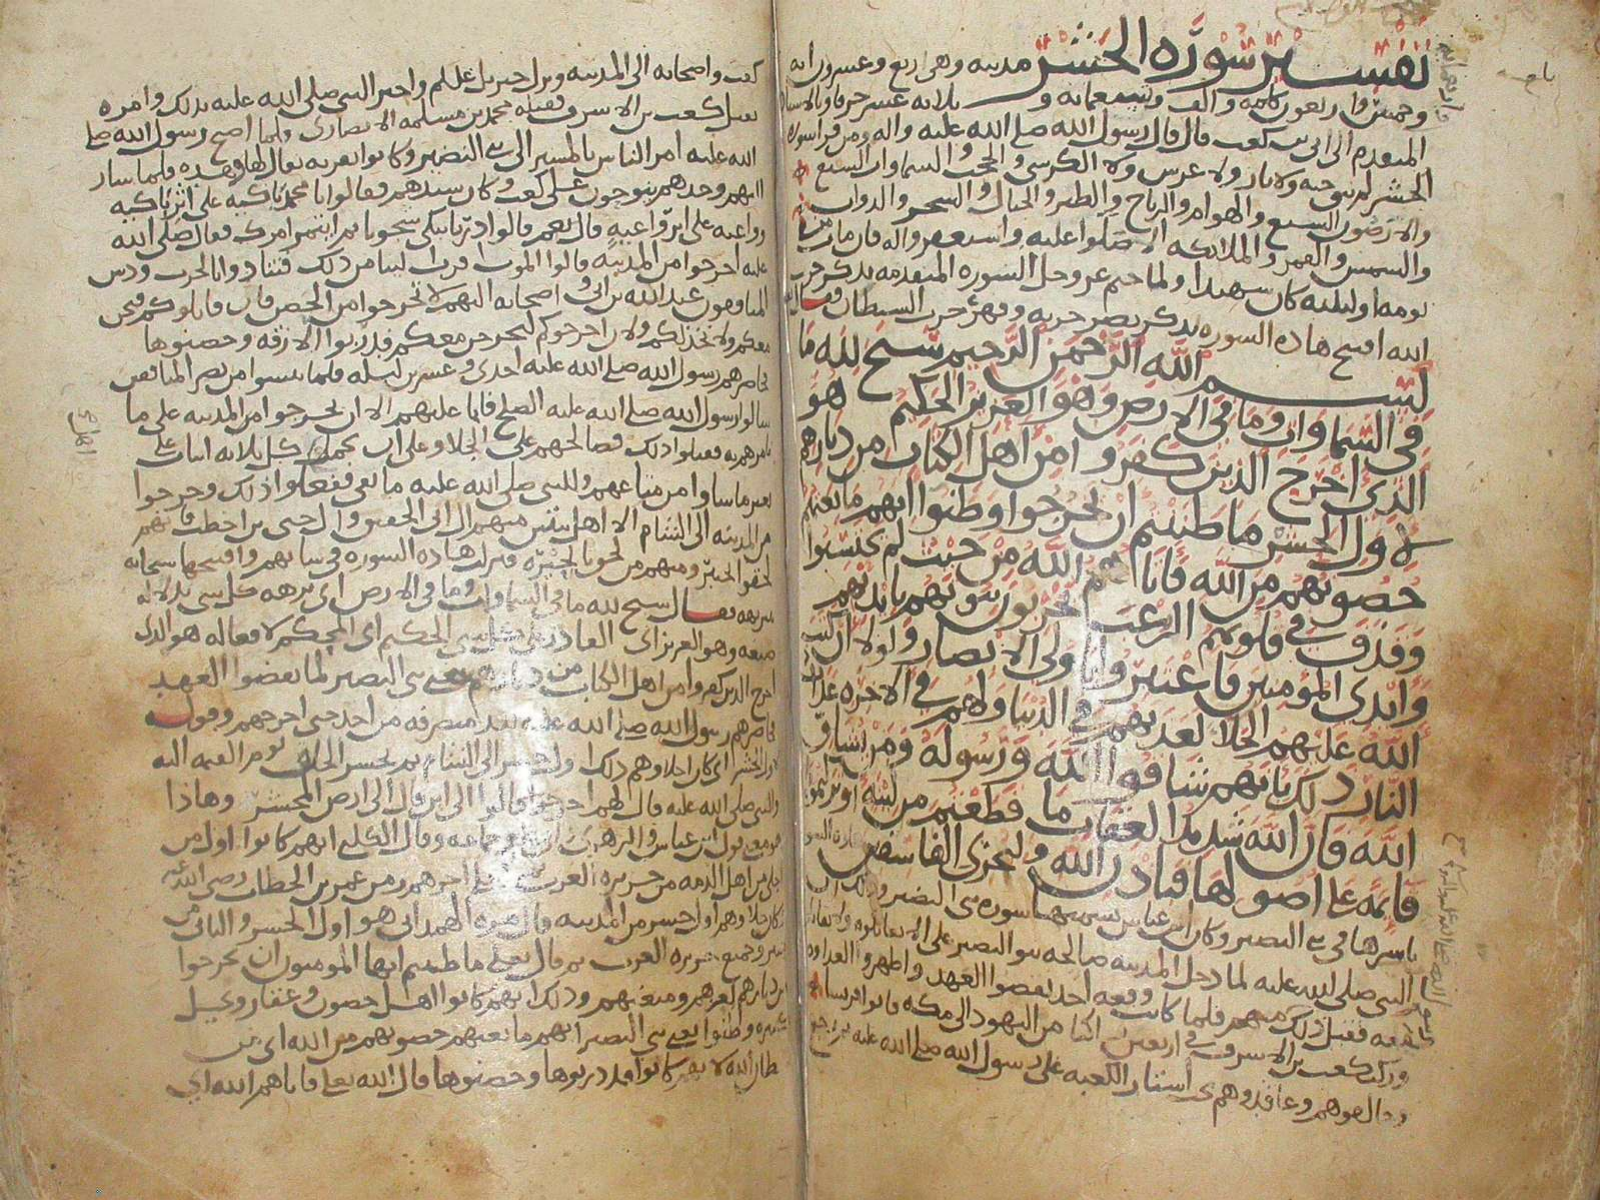 تفسير سورة الحشر مدنيه وهي اربع وعشرون ايه
وخمس واربعون كلمه والف وتسعمائه و ثلاثه عشر حرفا وبالاسناد
المتقدم الى ابي بن كعب قال قال رسول الله صلى الله عليه واله ومن قرا سوره
الحشر لم يبق جنه ولا نار ولا عرش ولا الكرسي و الحجب والسماوات السبع
والارضون السبع والهوام والرياح والطير و الجبال و الشجر والدواب
والشمس والقمر و الملائكه الا صلوا عليه واستغفروا له فان مات من
يومه او ليلته كان شهيدا ولما ختم عز وجل السوره المتقدمه بذكر حزب
الله افتتح هاذه السوره بذكر نصر حزبه وقهر حزب الشيطان فقال
بسم الله الرحمن الرحيم سبح لله ما
في السماوات وما في الارض وهو العزيز الحكيم هو
الذي اخرج الذين كفروا من اهل الكتاب من ديارهم
لاول الحشر ما ظننتم ان يخرجوا وظنوا انهم مانعتهم
حصونهم من الله فاتاهم الله من حيث لم يحتسبوا
وقذف في قلوبهم الرعب يخربون بيوتهم بايديهم
وايدي المومنين فاعتبروا يا اولي الابصار ولولا ان كتب
الله عليهم الجلا لعذبهم في الدنيا ولهم في الاخره عذاب
النار ذلك بانهم شاقوا الله ورسوله ومن يشاق
الله فان الله شديد العقاب ما قطعتم من لينة او تركتموها
قائمة على اصولها فباذن الله وليخزي الفاسقين
باسرها في بني النضير وكان ابن عباس يسميها سوره بني النضير وذلك ان
النبي صلى الله عليه لما دخل المدينه صالحه بنو النضير على الا يقاتلوه ولا يقاتلوا
معه فقبل ذلك منهم فلما كانت وقعه احد نقضوا العهد و اظهروا العداوه
وركب كعب بن الاشرف في اربعين راكبا من اليهود الى مكه فاتوا قريشا
وحالفوهم وعاقدوهم بين استار الكعبه على رسول الله صلى الله عليه ثم رجع
كعب واصحابه الى المدينه ونزل جبريل عليلم واخبر النبي صلى الله عليه بذلك وامره
بقتل كعب بن الاشرف فقتله محمد بن مسلمه الانصاري فلما اصبح رسول الله صلى
الله عليه امر الناس بالمسير الى بني النضير وكانوا بقريه يقال لها زهره فلما سار
اليهم وجدهم ينوحون على كعب وكان سيدهم فقالوا يا محمد باكيه على اثر باكيه
وواعيه على اثر واعيه قال نعم قالوا ذرنا نبكي شجونا ثم ائتمر امرك فقال صلى الله
عليه اخرجوا من المدينه قالوا الموت اقرب الينا من ذلك فتنادوا بالحرب ودس
المنافقون عبد الله بن ابي و اصحابه اليهم لا تخرجوا من الحصن فان قاتلوكم فنحن
معكم ولا نخذلكم ولان اخرجوكم لنخرجن معكم فدربوا الازقه وحصنوها
فحاصرهم رسول الله صلى الله عليه احدى وعشرين ليله فلما يئسوا من نصر المنافقين
سالوا رسول الله صلى الله عليه الصلح فابا عليهم الا ان يخرجوا من المدينه على ما
يامرهم به فقبلوا ذلك فصالحهم على الجلا وعلى ان يحمل كل ثلاثه ابيات على
بعير ما شاوا من متاعهم وللنبي صلى الله عليه ما بقي ففعلوا ذلك وخرجوا
من المدينه الى الشام الا اهل بيتين منهم ال ابي الحقيق وال حيي بن اخطب فانهم
لحقوا بخيبر ومنهم من لحق بالحيره فنزلت هاذه السوره في شانهم وافتتحها سبحانه
بتنزيهه فقال سبح لله ما في السماوات وما في الارض اي نزهه كل شي بدلاله
صنعه وهو العزيز اي القادر على كل شي الحكيم اي المحكم لافعاله هو الذي
اخرج الذين كفروا من اهل الكتاب من ديارهم يعني بني النضير لما نقضوا العهد
حاصرهم رسول الله صلى الله عليه بعد منصرفه من احد حتى اخرجهم وقوله
لاول الحشر اي كان اجلاوهم ذلك اول حشر الى الشام ثم يحشر الخلق يوم القيمه اليه
والنبي صلى الله عليه قال لهم اخرجوا قالوا الى اين قال الى ارض المحشر وهاذا
هو معنى قول ابن عباس والزهري وجماعه وقال الكلبي انهم كانوا اول من
اجلي من اهل الذمه من جزيره العرب ثم اجلا اخرهم زمن عمر بن الخطاب رضي الله عنه
فكان جلاوهم اول حشر من المدينه وقال مره الهمداني هو اول الحشر و الثاني من
خيبر وجميع جزيره العرب ثم قال تعالى ما ظننتم ايها المومنون ان يخرجوا
من ديارهم لعزهم ومنعتهم وذلك انهم كانوا اهل حصون وعقار ونخيل
كثيره وظنوا يعني بني النضير انهم مانعتهم حصونهم من الله اي من
سلطان الله لانهم كانوا قد دربوها وحصنوها قال الله تعالى فاتاهم الله اي